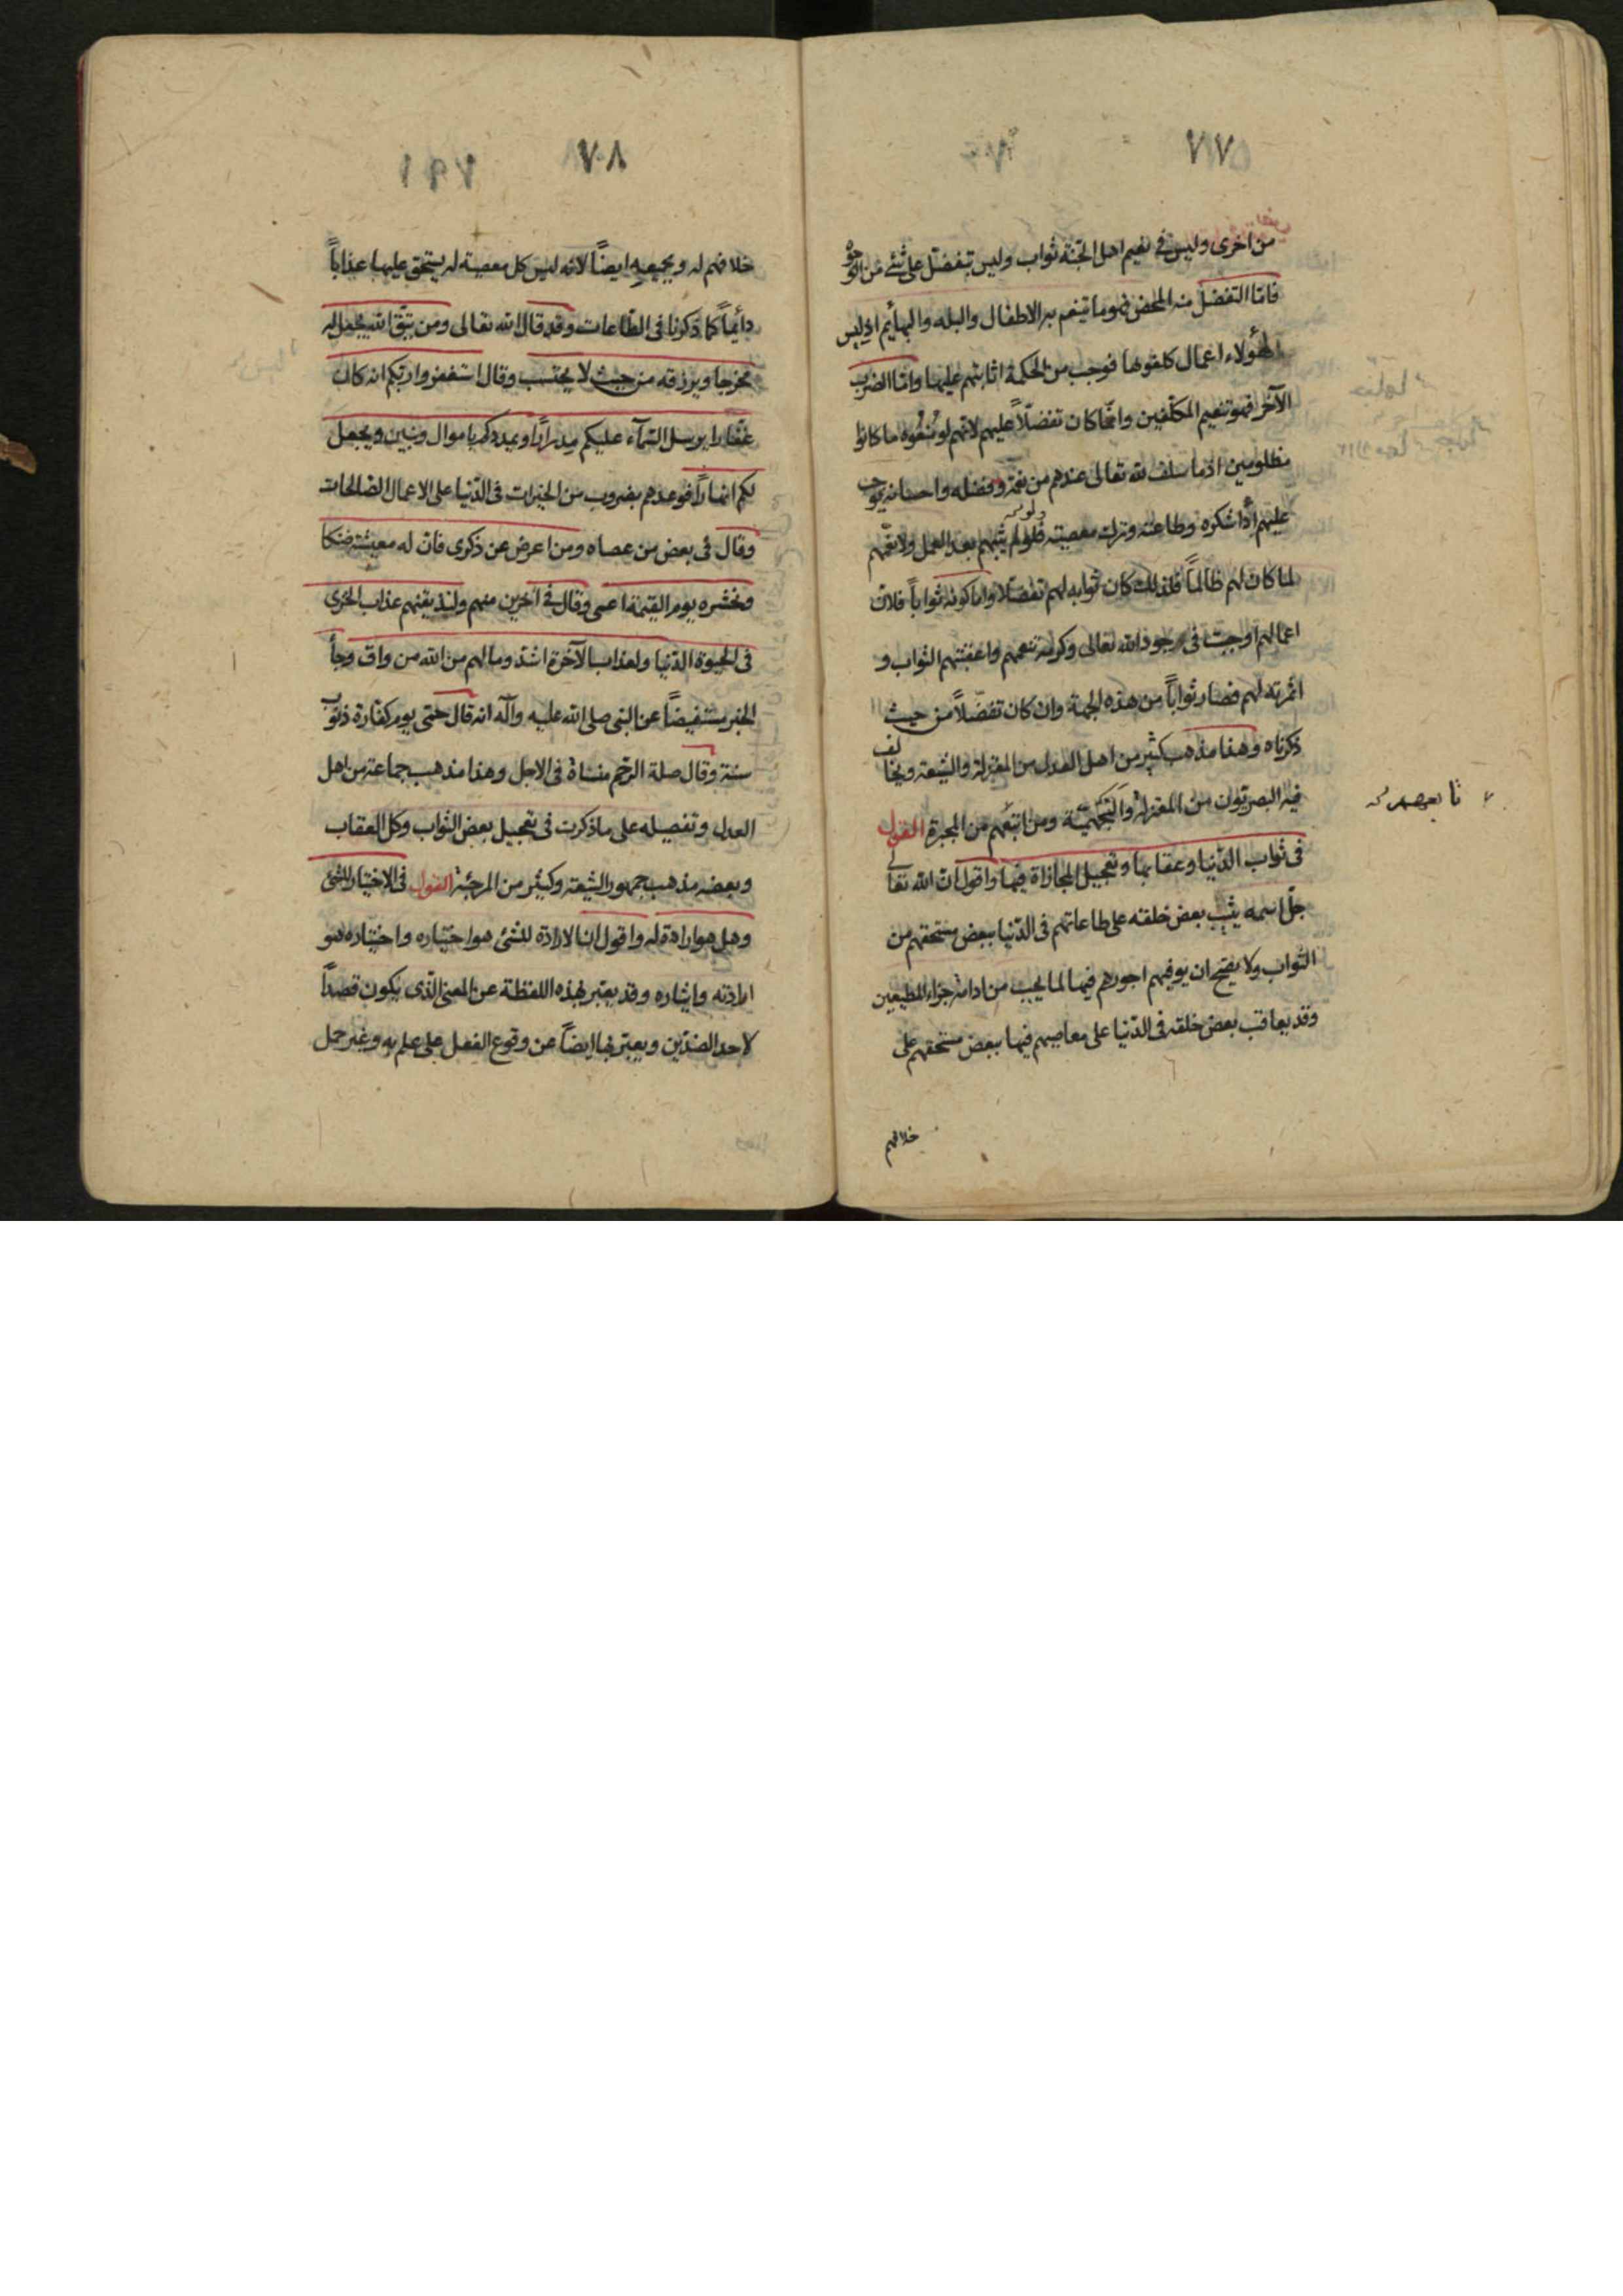 ٧٧
من اخرى وليس في نعيم اهل الجنة ثواب وليس بتفضل على شئ من الوجوه
فامّا التفضل منه المحض فهو ما يتنعم به الاطفال والبله والبهايم اذ ليس
لهؤلاء اعمال كلفوها فوجب من الحكمة اثابتهم عليها وامّا الضرب
الآخر فهو تنعيم المكلّفين وانّما كان تفضّلاً عليهم لانّهم لو مُنعُوه ما كانوا
مظلومين اذ ما سلف لله تعالى عندهم من نعمه وفضله واحسانه يوجب
عليهم أداشكره وطاعته وترك معصيته فلو لم يثبهم بعد العمل ولا ينعّمهم
لما كان لهم ظالماً فلذلك كان ثوابه لهم تفضّلا وامّا كونه ثواباً فلانّ
اعمالهم اوجبت في جود الله تعالى وكرمه تنعيمهم واعقبتهم الثواب و
اثمرته لهم فصار ثواباً من هذه الجهة وان كان تفضّلاً من حيث
ذكرناه وهذا مذهب كثير من اهل العدل من المعتزلة والشيعة ويخالف
فيه البصريّون من المعتزلة والجهميّة ومن اتبعهم من المجبرة القول
في ثواب الدّنيا وعقابها وتعجيل المجازاة فيها واقول انّ الله تعالى
جلّ اسمه يثيب بعض خلقه على طاعاتهم في الدّنيا ببعض مستحقهم من
الثواب ولا يصحّ ان يوفيهم اجورهم فيها لما يجب من ادامة جزاء المطيعين
وقد يعاقب بعض خلقه في الدّنيا على معاصيهم فيها ببعض مستحقهم على
خلافهم
٧٨
خلافهم له وبجميعه ايضاً لانّه ليس كل معصية له يستحق عليها عذاباً
دائماً كما ذكرنا في الطّاعات وقد قال الله تعالى ومن يتّق الله يجعل له
مخرجا ويرزقه من حيث لا يحتسب وقال استغفروا ربّكم انه كان
غفّارا يرسل السّمآء عليكم مِدراراً ويمددكم باموال وبنين ويجعل
لكم انهاراً فوعدهم بضروب من الخيرات في الدّنيا على الاعمال الصّالحات
وقال في بعض من عصاه ومن اعرض عن ذكرى فانّ له معيشة ضنكا
ونحشره يوم القيمة اعمى وقال في آخرين منهم ولنذيقنهم عذاب الخزى
في الحيوة الدّنيا ولعذاب الآخرة اشدّ وما لهم من الله من واق وجأ
الخبر مستفيضاً عن النبى صلى الله عليه وآله انه قال حمّى يوم كفّارة ذنوب
سنة وقال صلة الرّحم منساة في الاجل وهذا مذهب جماعة من اهل
العدل وتفصيله على ما ذكرت في تعجيل بعض الثواب وكل العقاب
وبعضه مذهب جمهور الشيعة وكثير من المرجئة القول في الاختيار للشئ
وهل هو ارادة له واقول انّ الارادة للشئ هو اختياره واختياره هو
ارادته وايثاره وقد يعتبر بهذه اللفظة عن المعنى الّذى يكون قصداً
لاحد الضدّين ويعبّر بها ايضاً عن وقوع الفعل على علم به وغير حمل